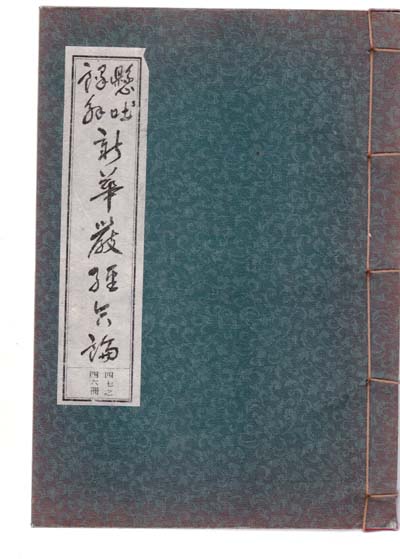 懸吐
譯解
新華嚴經合論
四七之
四六冊